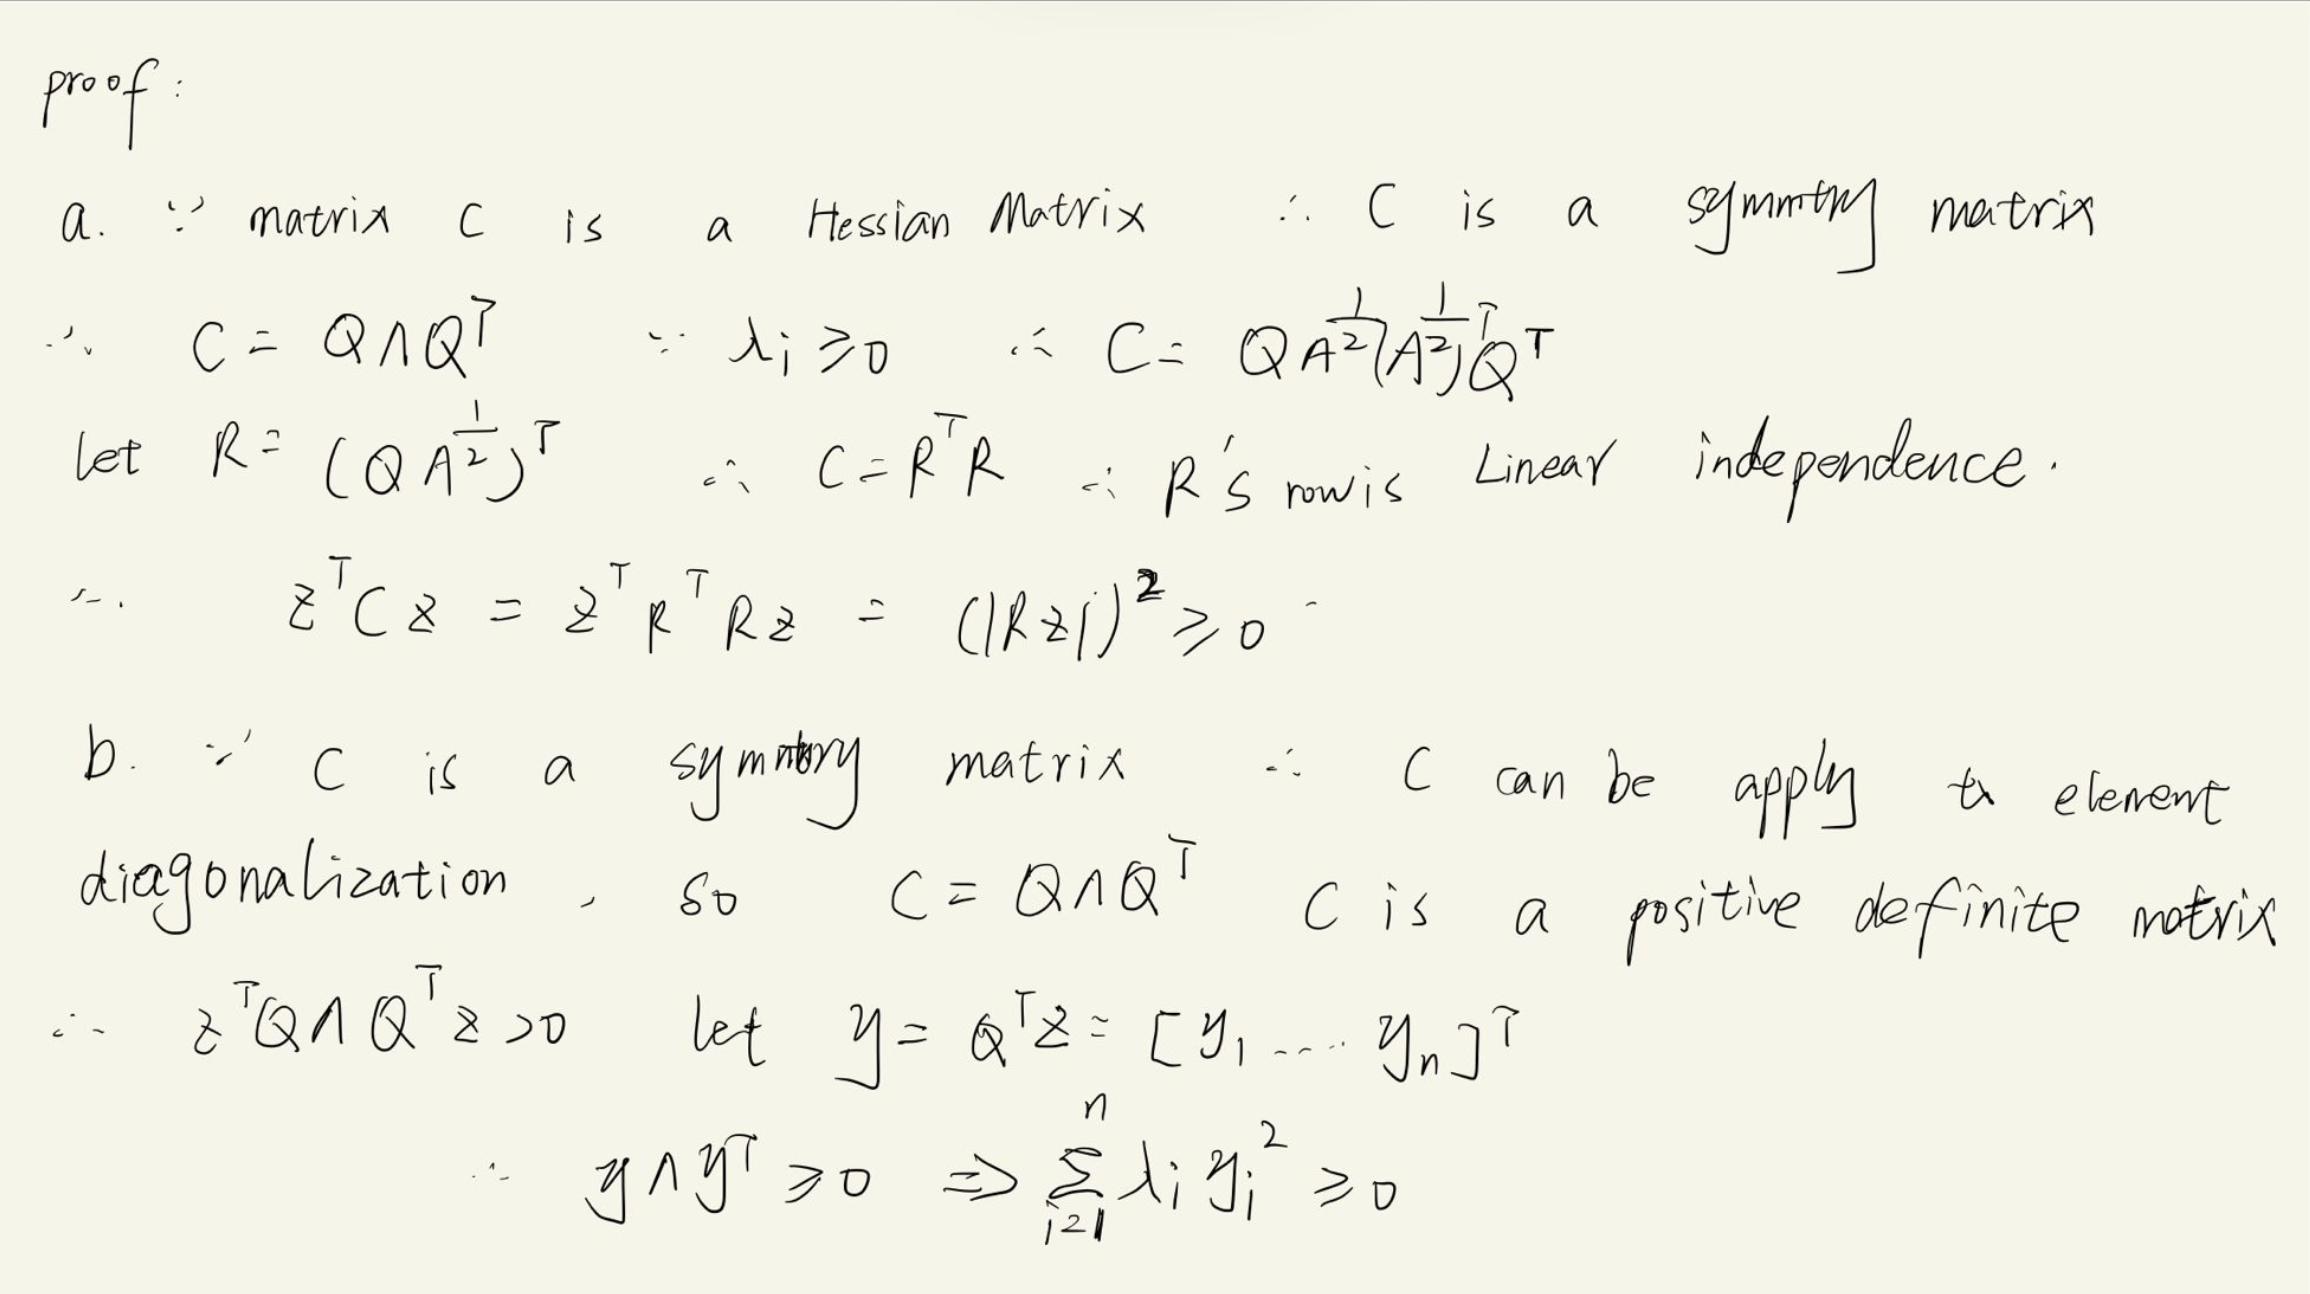 proof:
a. ∵ matrix C is a Hessian Matrix ∴ C is a symmtry matrix
∴ C = QΛQᵀ ∵ λi ≥ 0 ∴ C = QA^{1/2}(A^{1/2})ᵀQᵀ
let R = (QA^{1/2})ᵀ ∴ C = RᵀR ∴ R's row is Linear independence.
∴ zᵀCz = zᵀRᵀRz = (|Rz|)² ≥ 0
b. ∵ C is a matrix ∴ C can be apply to element
diagonalization, so C = QΛQᵀ C is a positive definite matrix
∴ zᵀQΛQᵀz > 0 let y = Qᵀz = [y₁ .... yₙ]ᵀ
∴ yΛyᵀ ≥ 0 ⇒ ∑_{i=1}^{n} λi yi² ≥ 0